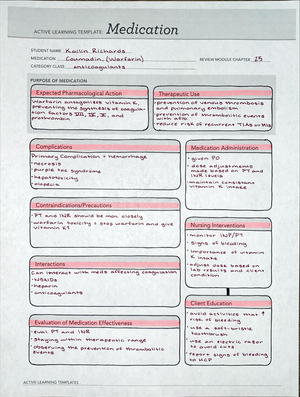 ACTIVE LEARNING TEMPLATE: Medication
STUDENT NAME Kailin Richards
MEDICATION Coumadin, (Warfarin) REVIEW MODULE CHAPTER 25
CATEGORY CLASS anticoagulants
PURPOSE OF MEDICATION
Expected Pharmacological Action
Warfarin antagonizes vitamin K,
preventing the synthesis of coagula-
tion factors VII, IX, X, and
prothrombin
Therapeutic Use
-prevention of venous thrombosis
and pulmonary embolism
-prevention of thrombotic events
with afib
-reduce risk of recurrent TIAs or MIs
Complications
Primary Complication = hemorrhage
-necrosis
-purple toe syndrome
-hepatotoxicity
-alopecia
Medication Administration
-given PO
-dose adjustments
made based on PT and
INR levels
-maintain consistent
vitamin K intake
Contraindications/Precautions
-PT and INR should be mon. closely
-warfarin toxicity = stop warfarin and give
vitamin K1
Nursing Interventions
-monitor INP/PT
-signs of bleeding
-importance of vitamin
K intake
-adjust dose based on
lab results and client
condition
Interactions
Can interact with meds affecting coagulation
-NSAIDs
-heparin
-anticoagulants
Client Education
-avoid activities that ↑
risk of bleeding
-use a soft-bristle
toothbrush
-use an electric razor
to avoid cuts
-report signs of bleeding
to HCP
Evaluation of Medication Effectiveness
-eval PT and INR
-staying within therapeutic range
-observing the prevention of thrombolitic
events
ACTIVE LEARNING TEMPLATES